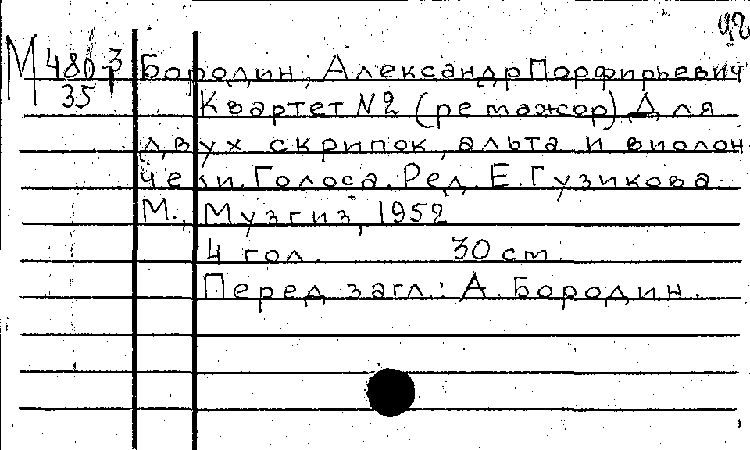 92
М 480-3 Бородин, Александр Порфирьевич
35 Квартет №2 (ре мажор) Для
двух скрипок, альта и виолон
чели. Голоса. Ред. Е. Гузикова
М., Музгиз, 1952
4 гол. 30 см.
Перед загл.: А. Бородин.